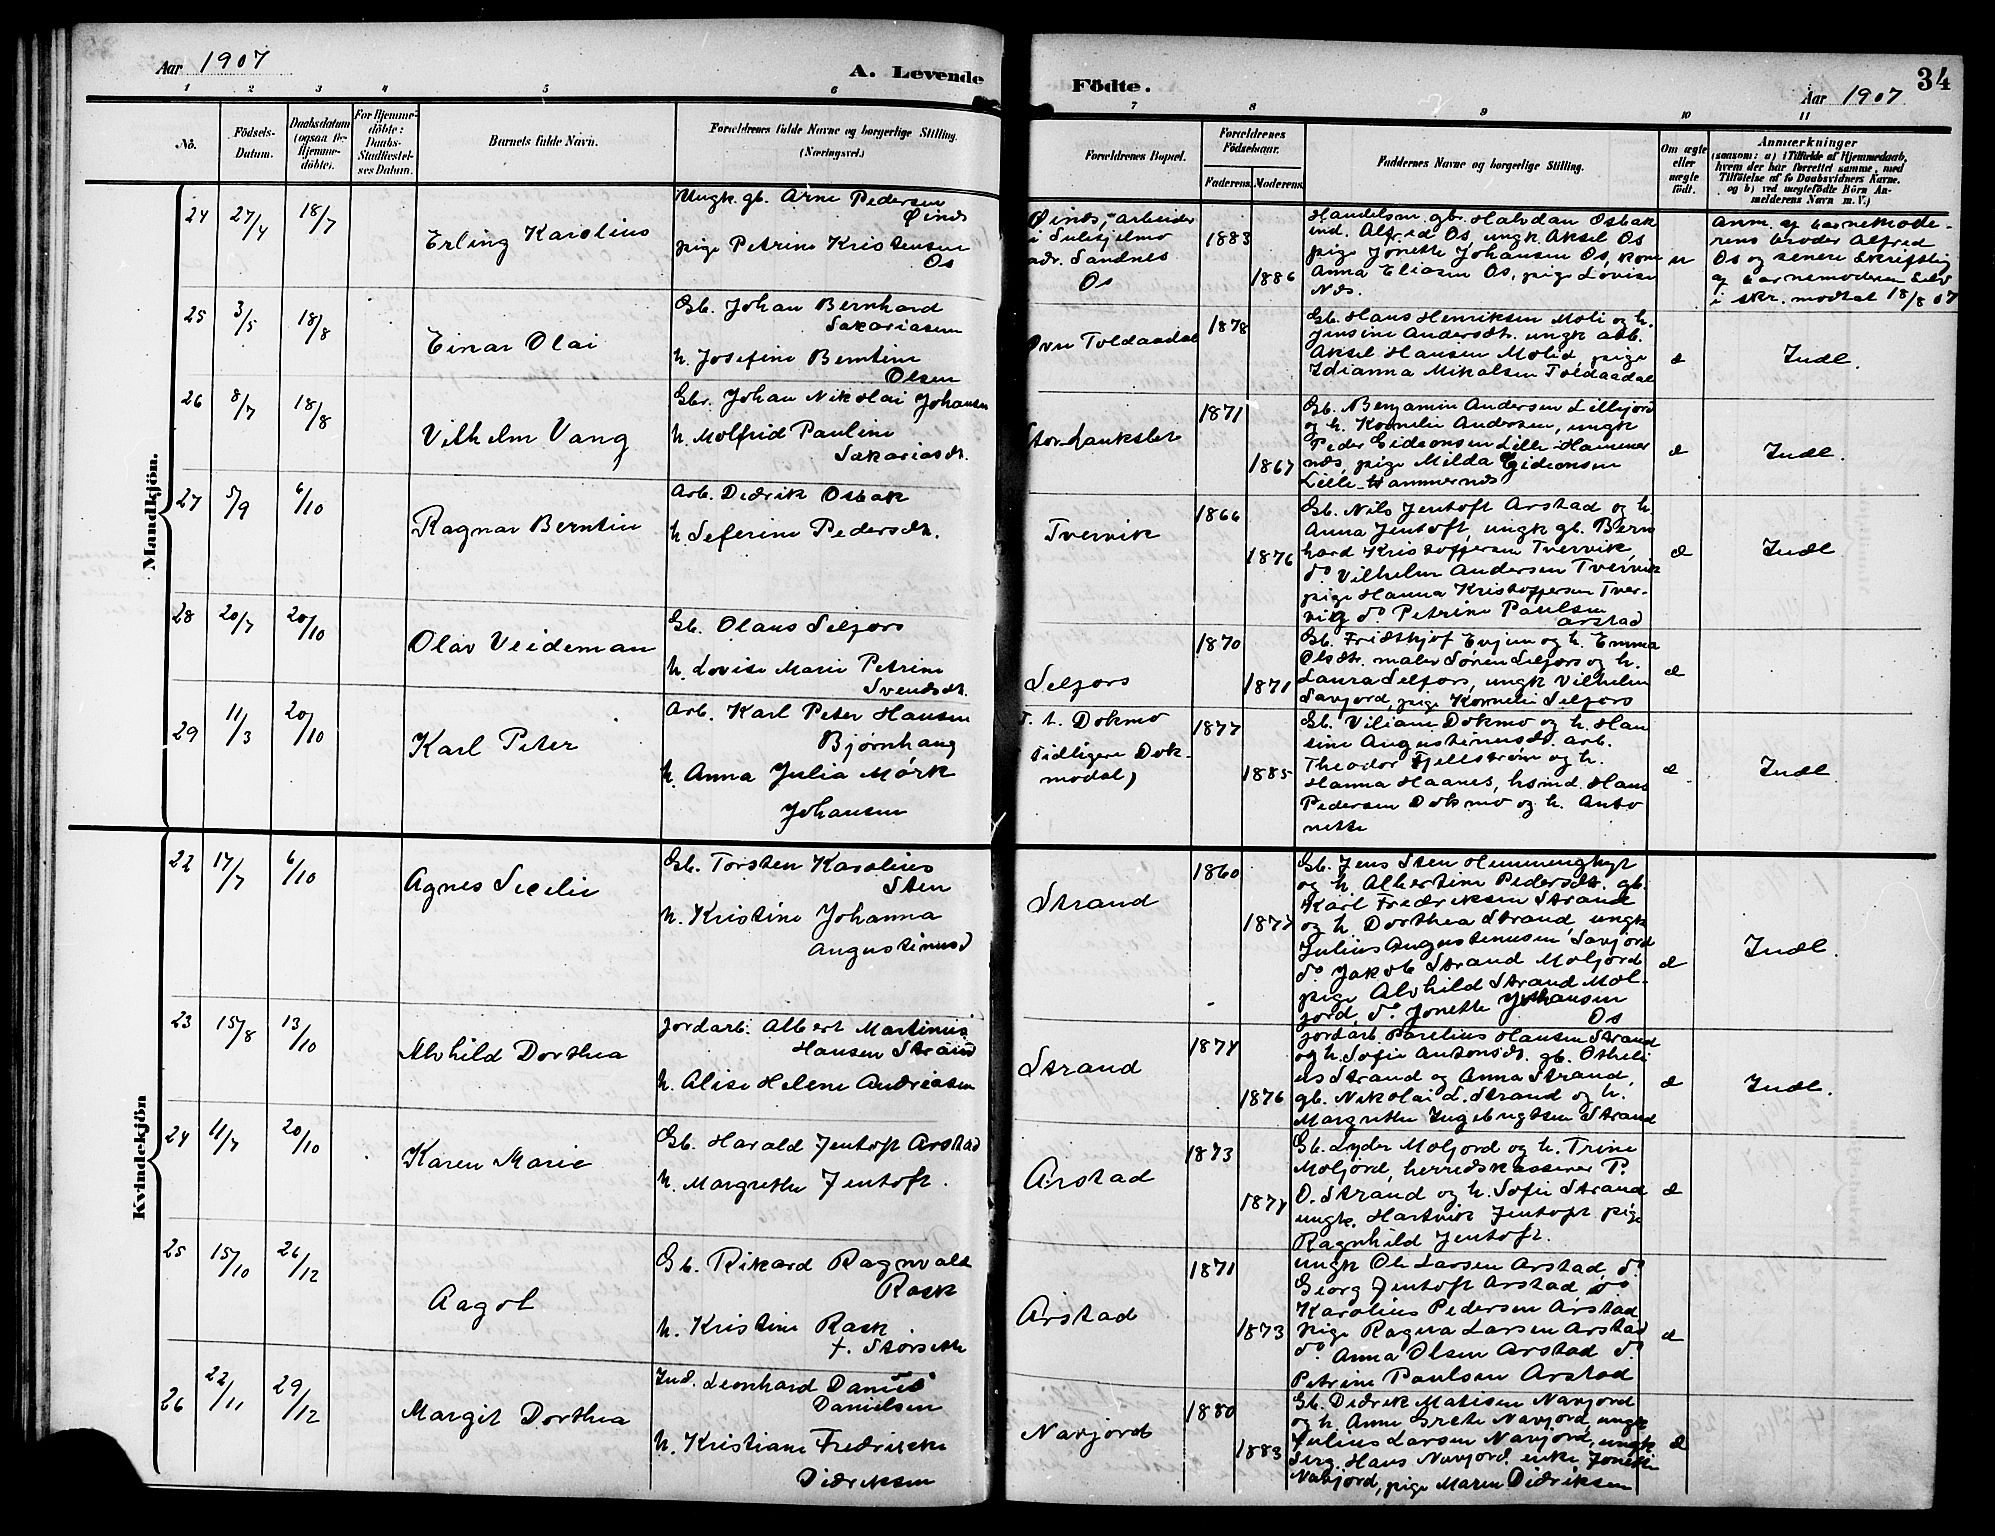 Aar 1907
A. Levende
Födte.
34
Aar 1907
1 2 3 4 5 6 7 8 9 10 11
No.
Födsels-
Datum.
Daabsdatum
(ogsaa for
Hjemme-
döbte).
For Hjemme-
döbte:
Daabs-
Stadfæstel-
ses Datum.
Barnets fulde Navn.
Forældrenes fulde Navne og borgerlige Stilling.
(Næringsvei.)
Forældrenes Bopæl.
Forældrenes
Födselsaar.
Faderens. Moderens.
Faddernes Navne og borgerlige Stilling.
Om ægte
eller
uægte
födt.
Anmærkninger
(saasom: a) i Tilfælde af Hjemmedaab,
hvem der har forrettet samme, med
Tilföielse af to Daabsvidners Navne,
og b) ved uægtefödte Börn An-
melderens Navn m. V.)
Mandkjön.
24 27/4 18/7
Erling Karolius
Ungk. gb. Arne Pedersen
Øines
pige Petrine Kristensen
Os
Øines, arbeider
i Sulitjelma
adr. Sandnes
Os
1883
1886
Handelsm. gb. Halvdan Osbak
ind. Alfred Os ungk Aksel Os
pige Jonette Johansen Os, kone
Anna Eliasen Os, pige Lovise
Næs.
u
Anm. af barnemode-
rens broder Alfred
Os og senere skriftlig
af barnemoderen selv
i skr. modtat 18/8 07
25 3/5 18/8
Einar Olai
Gb. Johan Bernhard
Sakariasen
h. Josefine Berntine
Olsen
Øvre Toldaadal
1878
Gb. Hans Henriksen Moli og h.
Jensine Andersdt. ungk arb.
Aksel Hansen Molid, pige
Idianna Mikalsen Toldaadal
æ
Indl.
26 8/7 18/8
Vilhelm Vang
Gbr. Johan Nikolai Johansen
h. Molfrid Pauline
Sakariasdt.
Storlankslet
1871
1867
Gb. Benjamin Andersen Lillejord
og h. Kornelie Andersen, ungk
Peder Gideonsen Lille-Hammer
næs, pige Milda Gideonsen
Lille-Hammernæs
æ
Indl.
27 5/9 6/10
Ragnar Berntin
Arb. Didrik Osbak
h. Seferine Pedersdt.
Tvervik
1866
1876
Gb. Nils Jentoft Arstad og h.
Anna Jentoft, ungk gb. Bern
hard Kristoffersen Tvervik,
do Vilhelm Andersen Tvervik
pige Hanna Kristoffersen Tver-
vig do Petrine Paulsen
Arstad
æ
Indl
28 20/7 20/10
Olav Veideman
Gb. Olaus Selfors
h. Lovise Marie Petrine
Svendsdt.
Selfors
1870
1871
Gb. Fridthjof Evjen og h. Emma
Olsdtr. maler Søren Selfors og h.
Laura Selfors, ungk Vilhelm
Savjord, pige Kornelie Selfors
æ
29 11/3 20/10
Karl Peter
Arb. Karl Peter Hansen
Bjørnhaug
h. Anna Julia Mørk
Johansen
F. t. Dokmo
tidligere Dok-
modal)
1877
1885
Gb. Viliam Dokmo og h. Han
sine Augustinusdt. arb.
Theodor Fjellstrøm og h.
Hanna Haanes, hsmd. Hans
Pedersen Dokmo og h. Anto
nette
æ
Indl.
Kvindekjön
22 17/7 6/10
Agnes Secelie
Gb. Torsten Karolius
Sten
h. Kristine Johanna
Augustinusd
Strand
1860
1877
Gb. Jens Sten Hemminghyt
og h. Albertine Pedersdt. gb.
Karl Fredriksen Strand
og h. Dorthea Strand ungk
Julius Augustinusen Savjord
do Jakob Strand Moljord
pige Alvhild Strand Mol-
jord, do Jonette Johansen
Os
æ
Indl.
23 15/8 13/10
Alvhild Dorthea
Jordarb. Albert Martinus
Hansen Strand
h. Alise Helene Andreasen
Strand
1874
1876
jordarb. Parelius Hansen Strand
og h. Sofie Antonsdt. gb. Otheli
us Strand og Anna Strand,
gb. Nikolai L. Strand og h.
Margrethe Ingebrigtsen Strand
æ
Indl.
24 11/7 20/10
Karen Marie
Gb. Harald Jentoft Arstad
h. Margrethe Jentoft.
Arstad
1873
1874
Gb. Lyder Moljord og h. Trine
Moljord, herredskasserer P.
O. Strand og h. Sofie Strand
ungk. Hartvik Jentoft pige
Ragnhild Jentoft.
æ
25 15/10 26/12
Aagot
Gb. Rikard Ragnvald
Rask
h. Kristine Rask
f. Storseth
Arstad
1871
1873
ungk Ole Larsen Arstad, do
Georg Jentoft Arstad do
Karolius Pedersen Arstad
pige Ragna Larsen Arstad
do Anna Olsen Arstad do
Petrine Paulsen Arstad
æ
26 22/11 29/12
Margit Dorthea
Ind. Leonhard Daniel
Danielsen
h. Kristiane Fredrikke
Didriksen
Navjord
1880
1883
Gb. Didrik Matisen Navjord
og h. Anne Grete Navjord, ungk
Julius Larsen Navjord, ungk
Serg. Hans Navjord, enke Jonette
Navjord, pige Maren Didriksen
æ